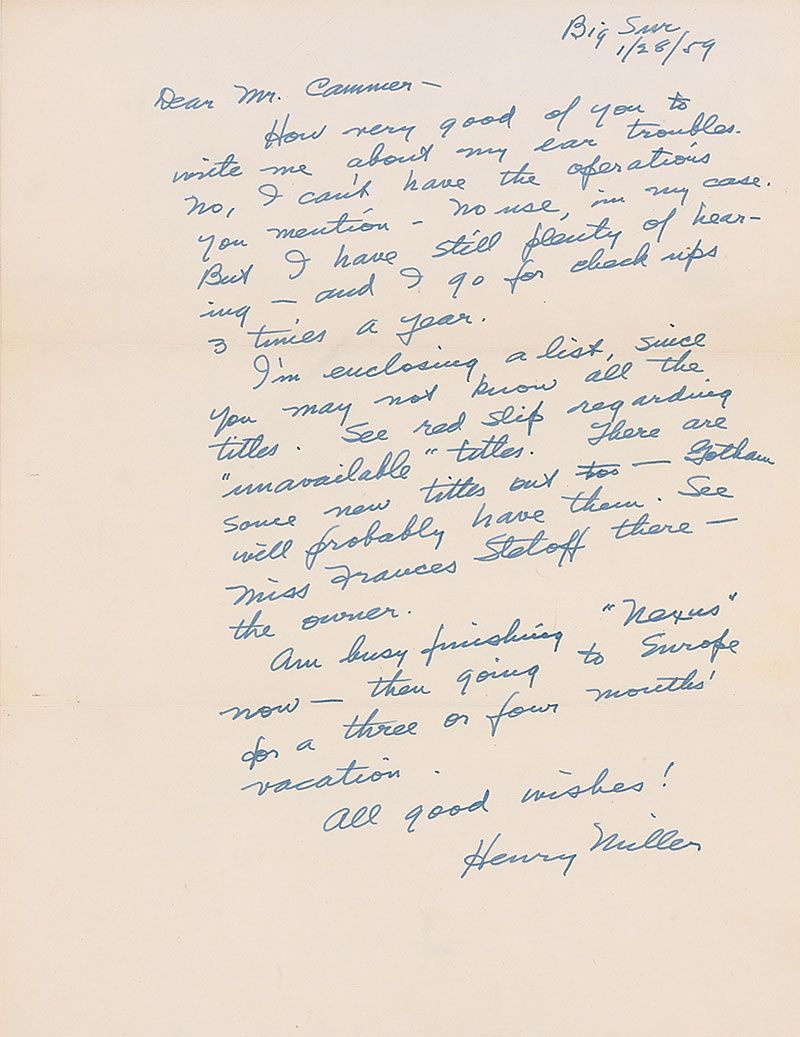 Big Sur
1/28/59
Dear Mr. Cammer —
How very good of you to
write me about my ear troubles.
No, I can't have the operations
you mention — no use, in my case.
But I have still plenty of hear-
ing — and I go for check ups
3 times a year.
I'm enclosing a list, since
you may not know all the
titles. See red slip regarding
"unavailable" titles. There are
some new titles out too — Gotham
will probably have them. See
Miss Frances Steloff there —
the owner.
Am busy finishing "Nexus"
now — then going to Europe
for a three or four months'
vacation.
All good wishes!
Henry Miller